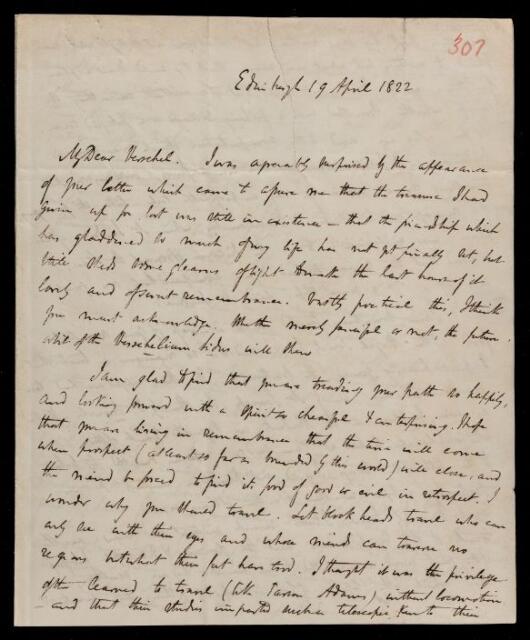 307
Edinburgh 19 April 1822
My Dear Herschel. I was agreeably surprised by the appearance
of your letter which came to assure me that the treasure I had
given up for lost was still in existence – that the friendship which
has gladdened so much of my life has not yet finally set, but
still sheds some gleams of light to the last hours of it
lovely and remembrance. Vastly poetical this, I think
you must acknowledge. Whether merely or not, the future
orbit of the Herschelium Sidus will shew
I am glad to find that you are treading your path so happily,
and looking forward with a spirit so cheerful & enterprising. I hope
that you are living in remembrance that the time will come
when prospect (at least so far as bounded by this world) will close, and
the mind be forced to find its food of good or evil in retrospect. I
wonder why you should travel. Let blockheads travel who can
only see with their eyes and whose minds can traverse no
regions but what their feet have trod. I thought it was the privilege
of the learned to travel (like Parson Adams) without locomotion
– and that their studies imparted such a telescopic ken to them